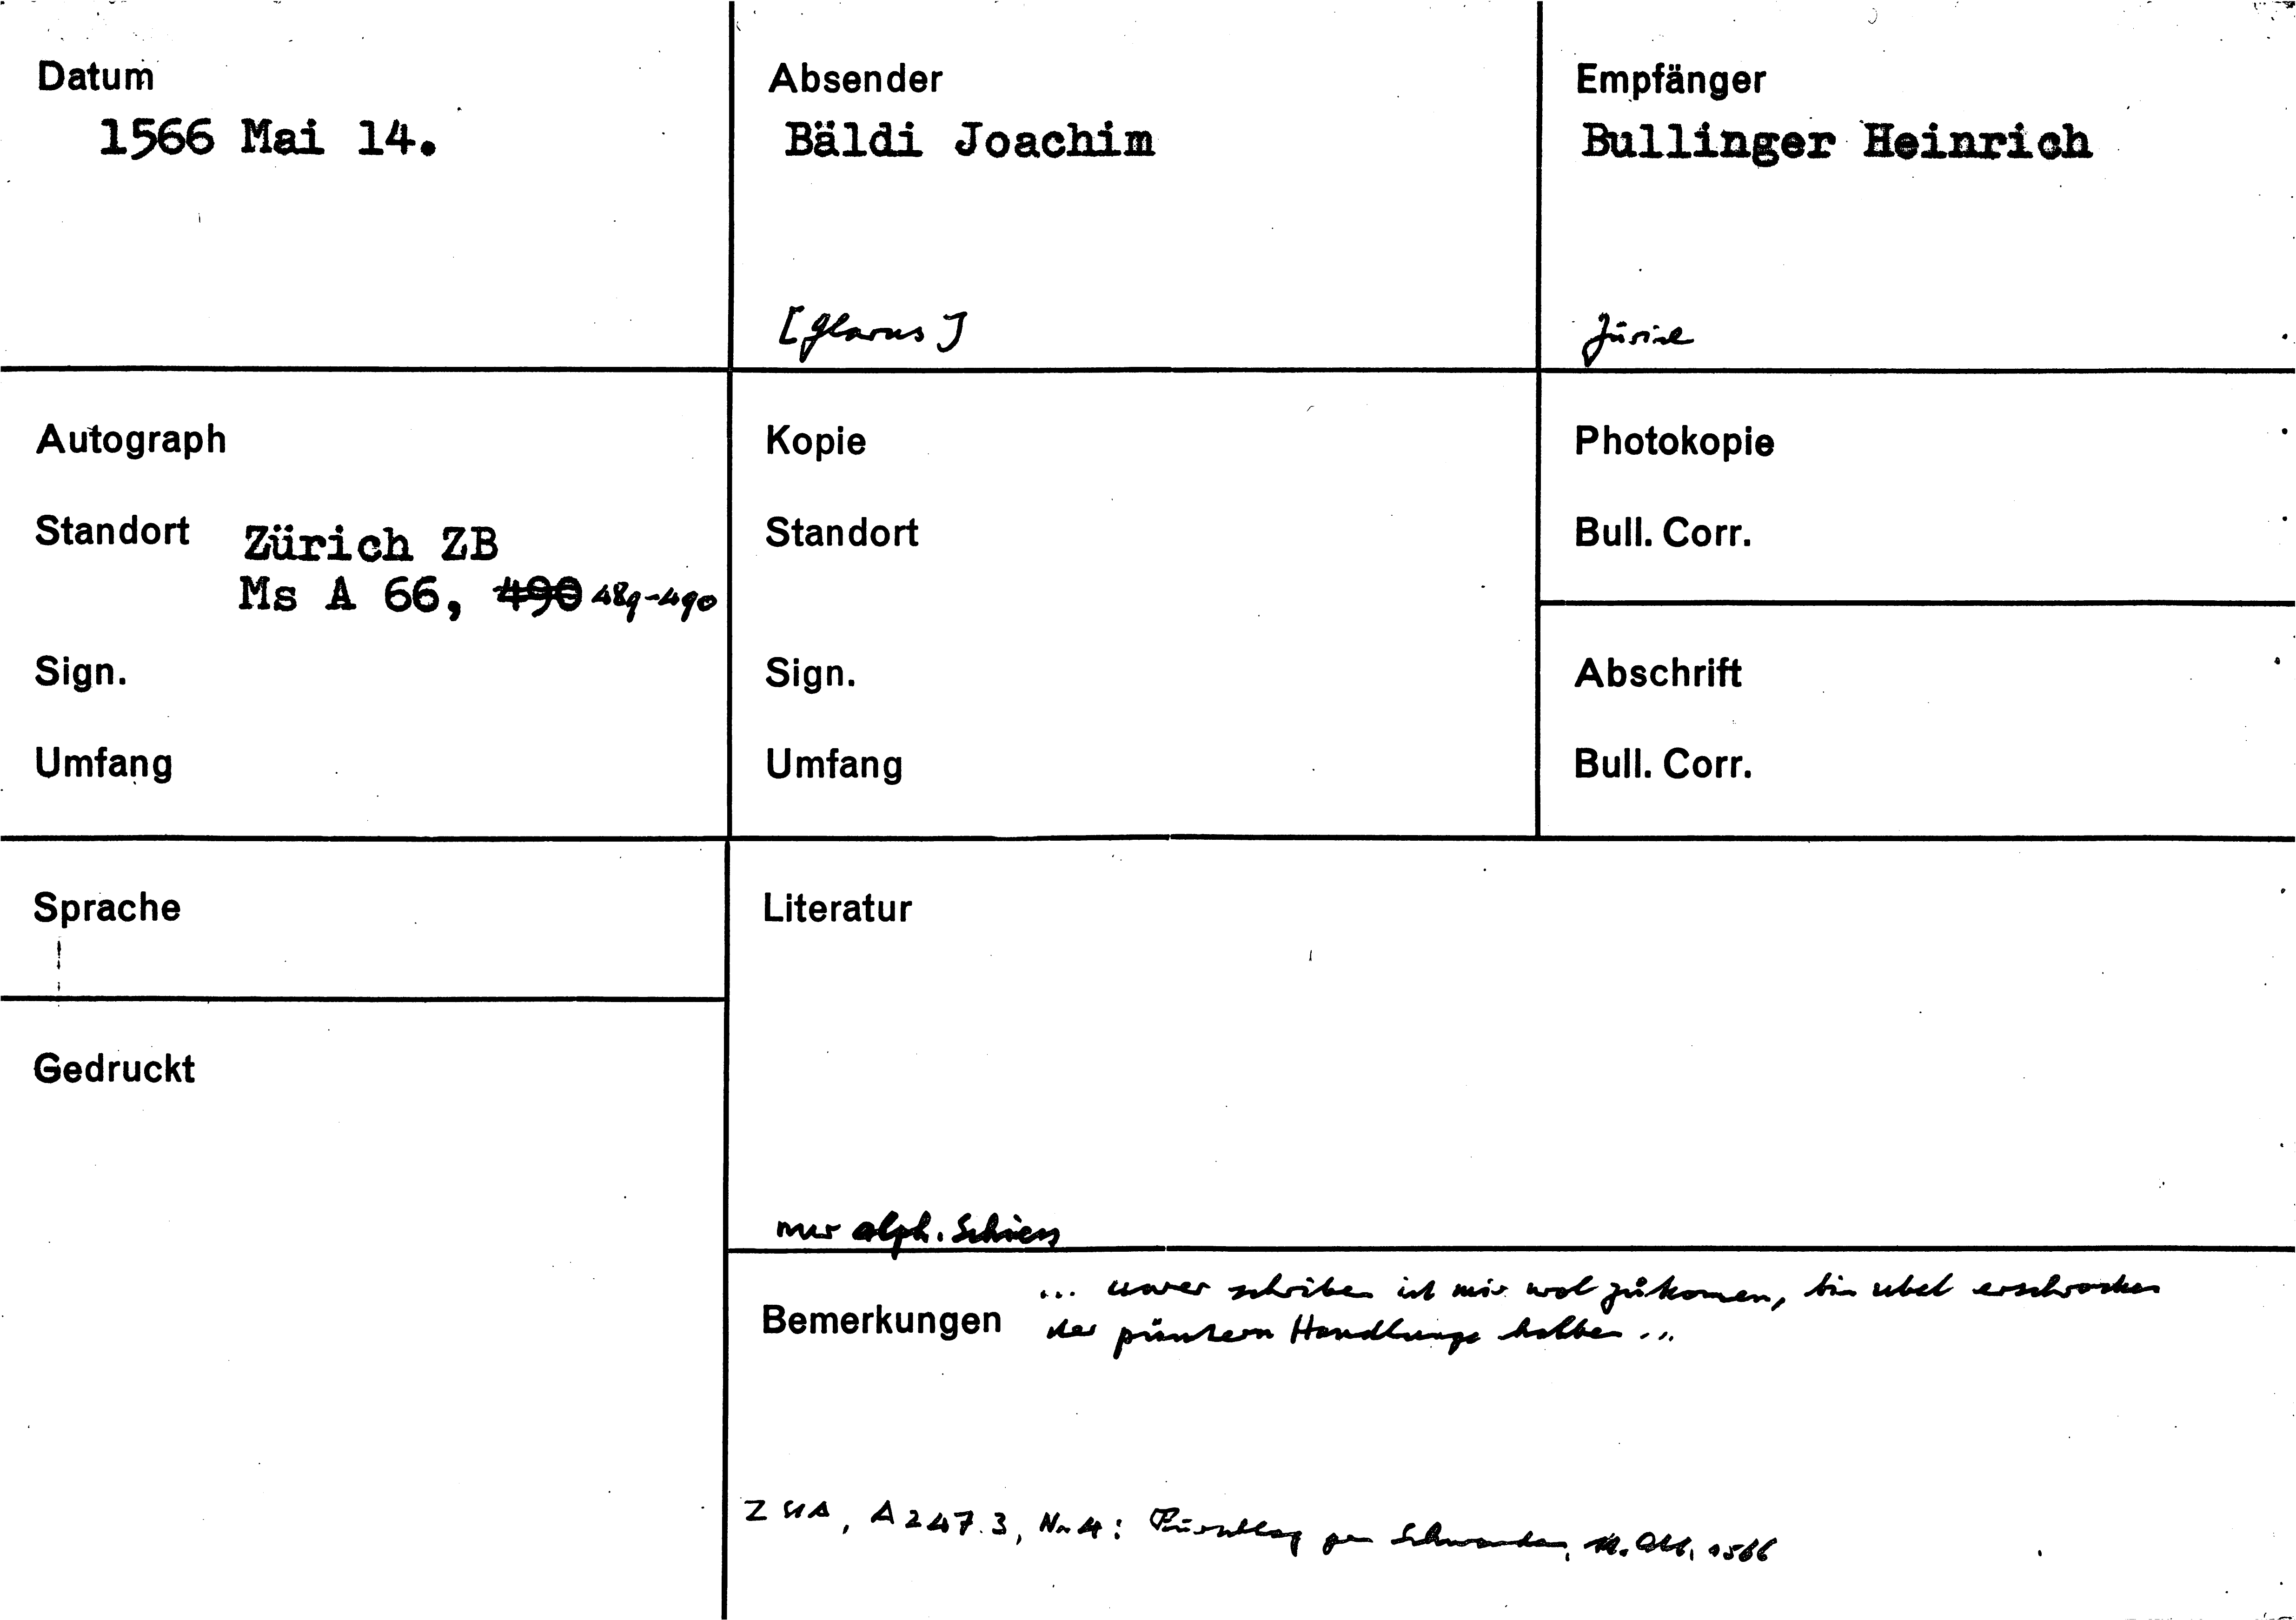 Datum
1566 Mai 14.
Absender
Bäldi Joachim
[Glarus]
Empfänger
Bullinger Heinrich
Zürich
Autograph
Standort Zürich ZB
Ms A 66, 490 489-490
Sign.
Umfang
Kopie
Standort
Sign.
Umfang
Photokopie
Bull. Corr.
Abschrift
Bull. Corr.
Sprache
Gedruckt
Literatur
nur alph. Schiess
Bemerkungen
... schriben ist mir wol zůkomen, bin ubel erschrocken
der Handlunge halben ...
Z StA, A 247.3, Nr. 4: Schwanden, Okt. 1566